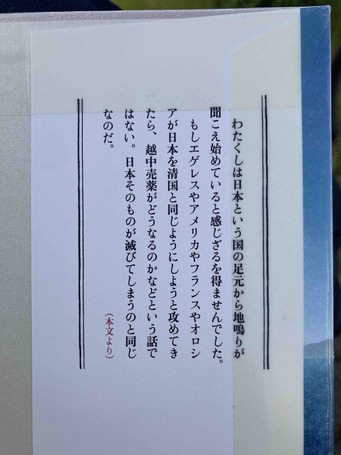 わたくしは日本という国の足元から地鳴りが
聞こえ始めていると感じざるを得ませんでした。
もしエゲレスやアメリカやフランスやオロシ
アが日本を清国と同じようにしようと攻めてき
たら、越中売薬がどうなるのかなどという話で
はない。日本そのものが滅びてしまうのと同じ
なのだ。
（本文より）